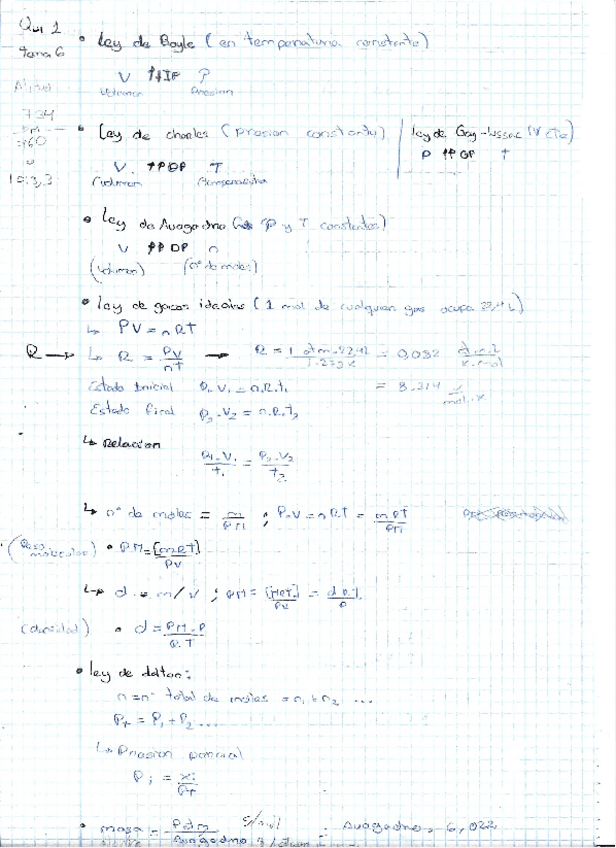 Qui 1
tema 6
• Ley de Boyle (en temperatura constante)
V ↑↓IP P
Volumen Presion
• Ley de charles (presion constante)
V. ↑↑DP T
(volumen temperatura
ley de Gay-Lussac (V cte)
P ↑↑ DP T
• Ley de Avogadro (P y T constantes)
V ↑↑ DP n
(volumen) (nº de moles)
• Ley de gases ideales (1 mol de cualquier gas ocupa 22,4 L)
↳ PV = nRT
R → ↳ R = PV/nT → R = = 0,082
= 8.314
Estado Inicial P₁.V₁ = n.R.t₁
Estado final P₂.V₂ = n.R.T₂
↳ Relacion
P₁.V₁/t₁ = P₂.V₂/t₂
↳ nº de moles = m/PM ; P.V = n.R.T = mRT/PM
(Peso molecular) • PM = [m.R.T]/PV
↳ d = m/V ; PM = = d.R.T/P
(densidad) • d = PM.P/R.T
• Ley de dalton:
n = nº total de moles = n₁ + n₂ ...
Pt = P₁ + P₂ ...
↳ Presion parcial
Pi = Xi/PT
• masa = = Avogadro = 6,022